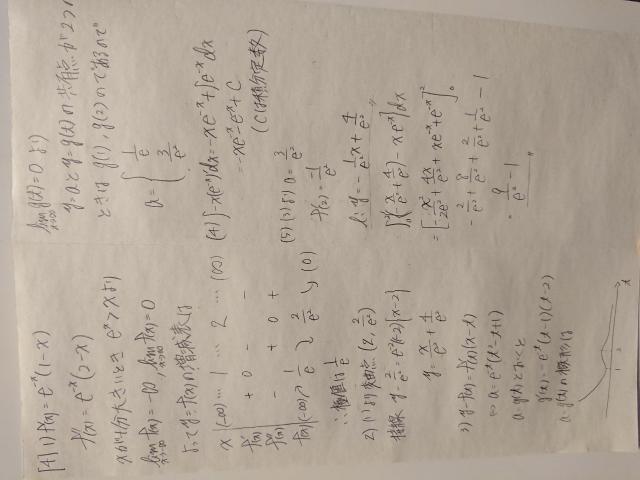 [4] 1) f'(x) = e^{-x}(1-x)
f''(x) = e^{-x}(2-x)
xが十分大きいとき e^x > xより
lim_{x→-∞} f(x) = -∞, lim_{x→∞} f(x) = 0
よって y=f(x)の増減表は
x (-∞) … 1 … 2 … (∞)
f'(x) + 0 - -
f''(x) - + 0 +
f(x) (-∞) ↗ 1/e ↘ 2/e² ↘ (0)
∴極値は 1/e
2) (1)より 変曲点 (2, 2/e²)
接線 y - 2/e² = e^{-2}(-2)(x-2)
y = -x/e² + 4/e²
3) y-f(x) = f'(x)(x-t)
⇔ a = e^{-t}(t²-t+1)
a = g(t)とおくと
g'(t) = -e^{-t}(t-1)(t-2)
a = g(t)の概形は
1 2 x
lim_{x→∞} g(t) = 0 より
y=aとy=g(t)の共有点が2つの
ときは g(1), g(2)のであるので
a = { 1/e
3/e²
(4) ∫-x(e^{-x})'dx = -xe^{-x} + ∫e^{-x}dx
= -xe^{-x} - e^{-x} + C
(Cは積分定数)
(5) (3)より a = 3/e²
f'(2) = -1/e²
l: y = -1/e² x + 4/e²
∫₀²{(-x/e² + 4/e²) - xe^{-x}}dx
= [-x²/2e² + 4x/e² + xe^{-x} + e^{-x}]₀²
= -2/e² + 8/e² + 2/e² + 1/e² - 1
= 9/e² - 1